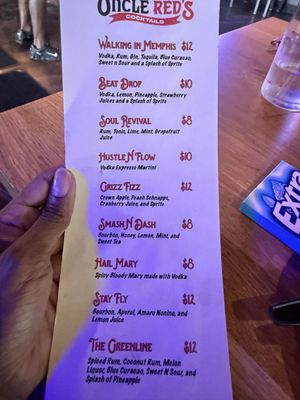 UNCLE RED'S
COCKTAILS
WALKING IN MEMPHIS $12
Vodka, Rum, Gin, Tequila, Blue Curacao,
Sweet n Sour and a Splash of Sprite
BEAT DROP $10
Vodka, Lemon, Pineapple, Strawberry
Juices and a Splash of Sprite
SOUL REVIVAL $8
Rum, Tonic, Lime, Mint, Grapefruit
Juice
HUSTLE N FLOW $10
Vodka Espresso Martini
GRIZZ FIZZ $12
Crown Apple, Peach Schnapps,
Cranberry Juice, and Sprite
SMASH N DASH $8
Bourbon, Honey, Lemon, Mint, and
Sweet Tea
HAIL MARY $8
Spicy Bloody Mary made with Vodka
STAY FLY $12
Bourbon, Aperol, Amaro Nonino, and
Lemon Juice
THE GREENLINE $12
Spiced Rum, Coconut Rum, Melon
Liquor, Blue Curacao, Sweet N Sour, and
Splash of Pineapple
Extra